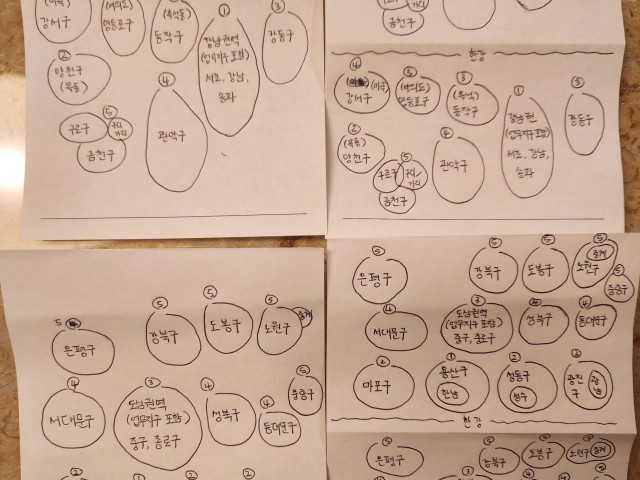 강서구
(여의도)
영등포구
(흑석동)
동작구
①
강남권역
(업무지구 포함)
서초, 강남,
송파
③
강동구
②
양천구
(목동)
④
관악구
⑤
구로구
구디
가디
금천구
가디
금천구
한강
④
(마곡)
강서구
⑤
(여의도)
영등포구
③
(흑석)
동작구
①
강남권
(업무지구 포함)
서초, 강남,
송파
③
강동구
②
(목동)
양천구
⑤
구로구
구디/
가디
금천구
④
관악구
5
은평구
⑤
강북구
⑤
도봉구
⑤
노원구
중계
④
서대문구
③
도심권역
(업무지구 포함)
중구, 종로구
④
성북구
④
동대문구
⑤
중랑구
②
①
②
⑤
은평구
⑤
강북구
⑤
도봉구
⑤
노원구
중계
⑤
중랑구
④
서대문구
③
도심권역
(업무지구 포함)
중구, 종로구
④
성북구
④
동대문구
②
마포구
①
용산구
한남
②
성동구
성수
광진
구
광남
한강
⑤
은평구
⑤
강북구
⑤
도봉구
⑤
노원구
중계